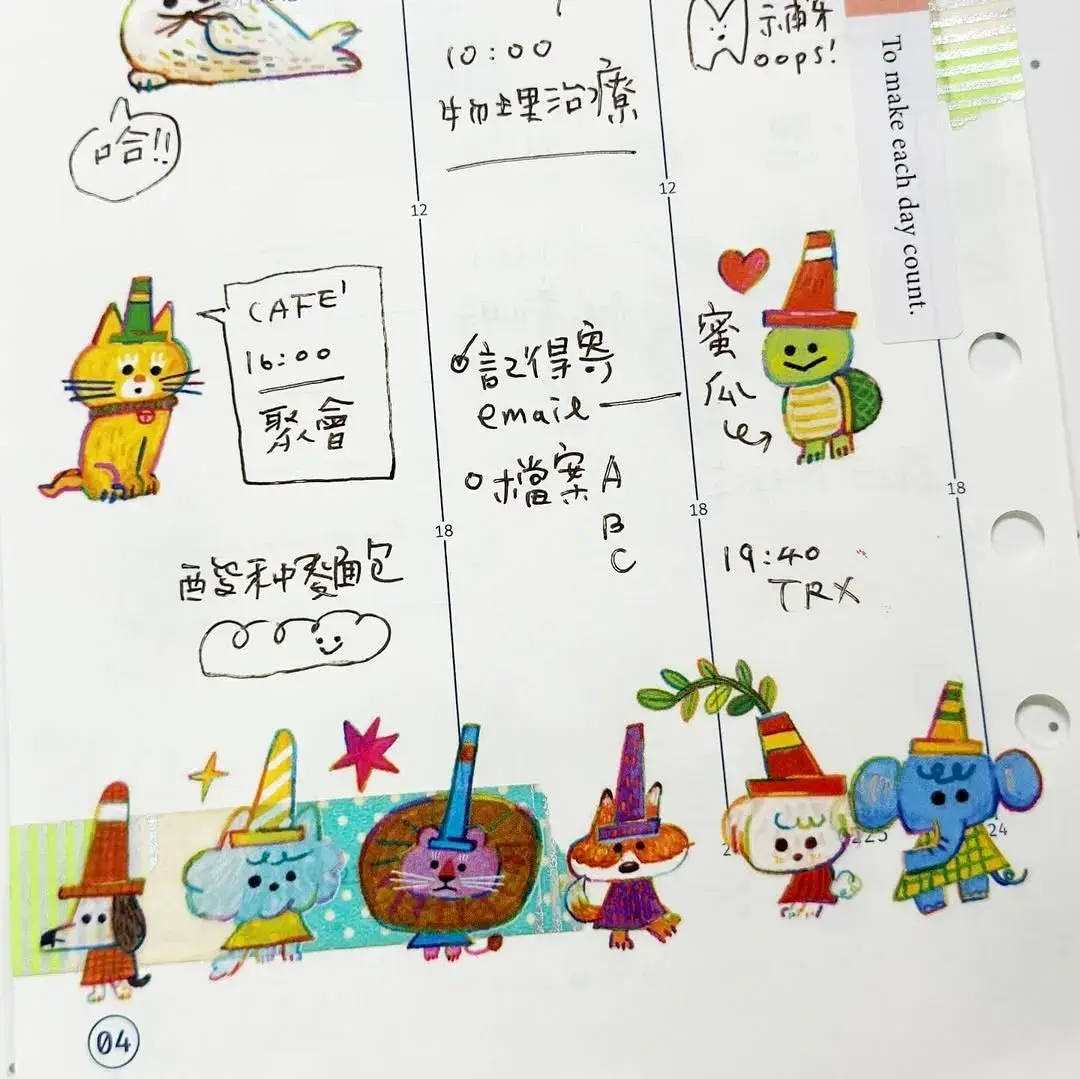 哈!!
CAFE'
16:00
聚會
酸種麵包
04
10:00
物理治療
12
記得寄
email
檔案 A
B
C
18
補牙
oops!
12
蜜
瓜
18
19:40
TRX
18
24
To make each day count.